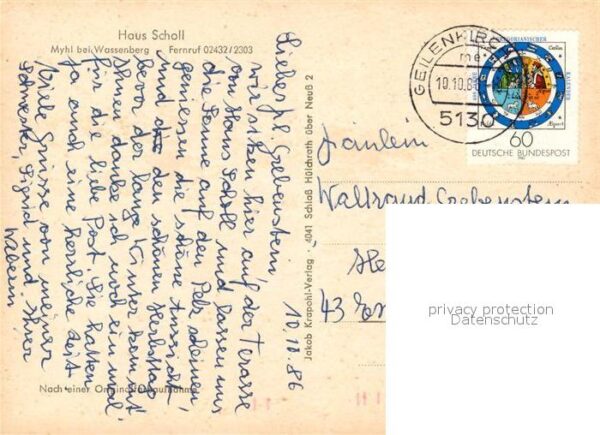 Haus Scholl
Myhl bei Wassenberg Fernruf 02432/2303
10.10.86
Liebes Frl. Grebenstein
wir sitzen hier auf der Terasse
von Haus Scholl und lassen uns
die Sonne auf den Pelz scheinen
geniessen die schöne Aussicht
und den schönen Herbsttag
bevor der lange Winter kommt
Ihnen danke ich noch einmal
für die liebe Post. Sie hatten
ja auch eine herrliche Zeit
Viele Grüsse von meiner
Schwester, Sigrid und Ihrer
Nach einer Originalfarbaufnahme
Jakob Krapohl-Verlag · 4041 Schloß Hülchrath über Neuß 2
GEILENKIRCHEN
me
10.10.86
5130
60
DEUTSCHE BUNDESPOST
Fräulein
Waltraud Grebenstein
43
privacy protection
Datenschutz